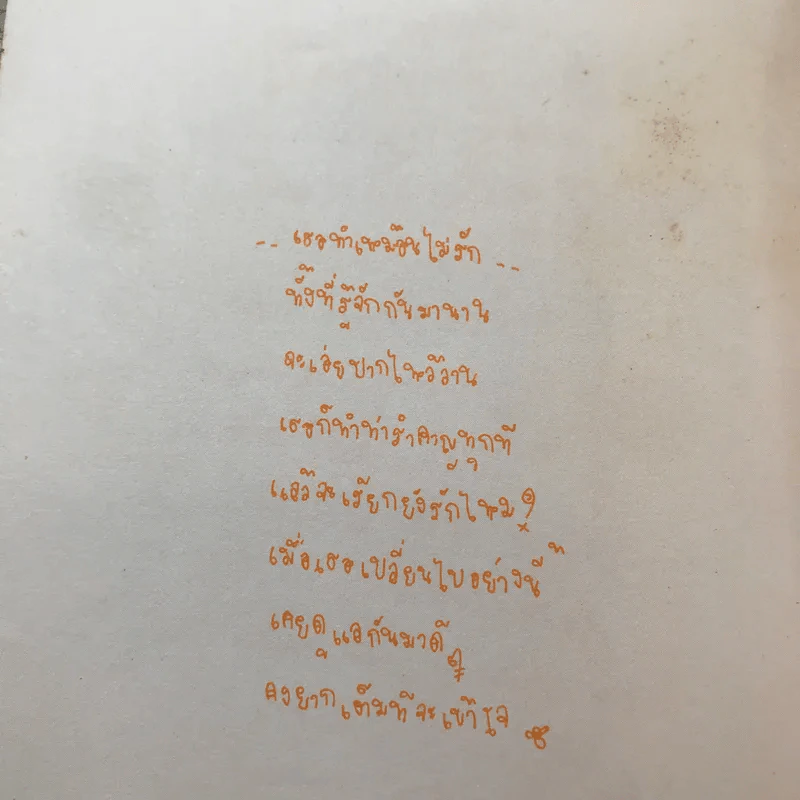 -- เธอทำเหมือนไม่รัก --
ทั้งที่รู้จักกันมานาน
จะเอ่ยปากไหว้วาน
เธอก็ทำท่ารำคาญทุกที
แล้วจะเรียกยังรักไหม?
เมื่อเธอเปลี่ยนไปอย่างนี้"
เคยดูแลกันมาดีๆ
คงยากเต็มทีจะเข้าใจ